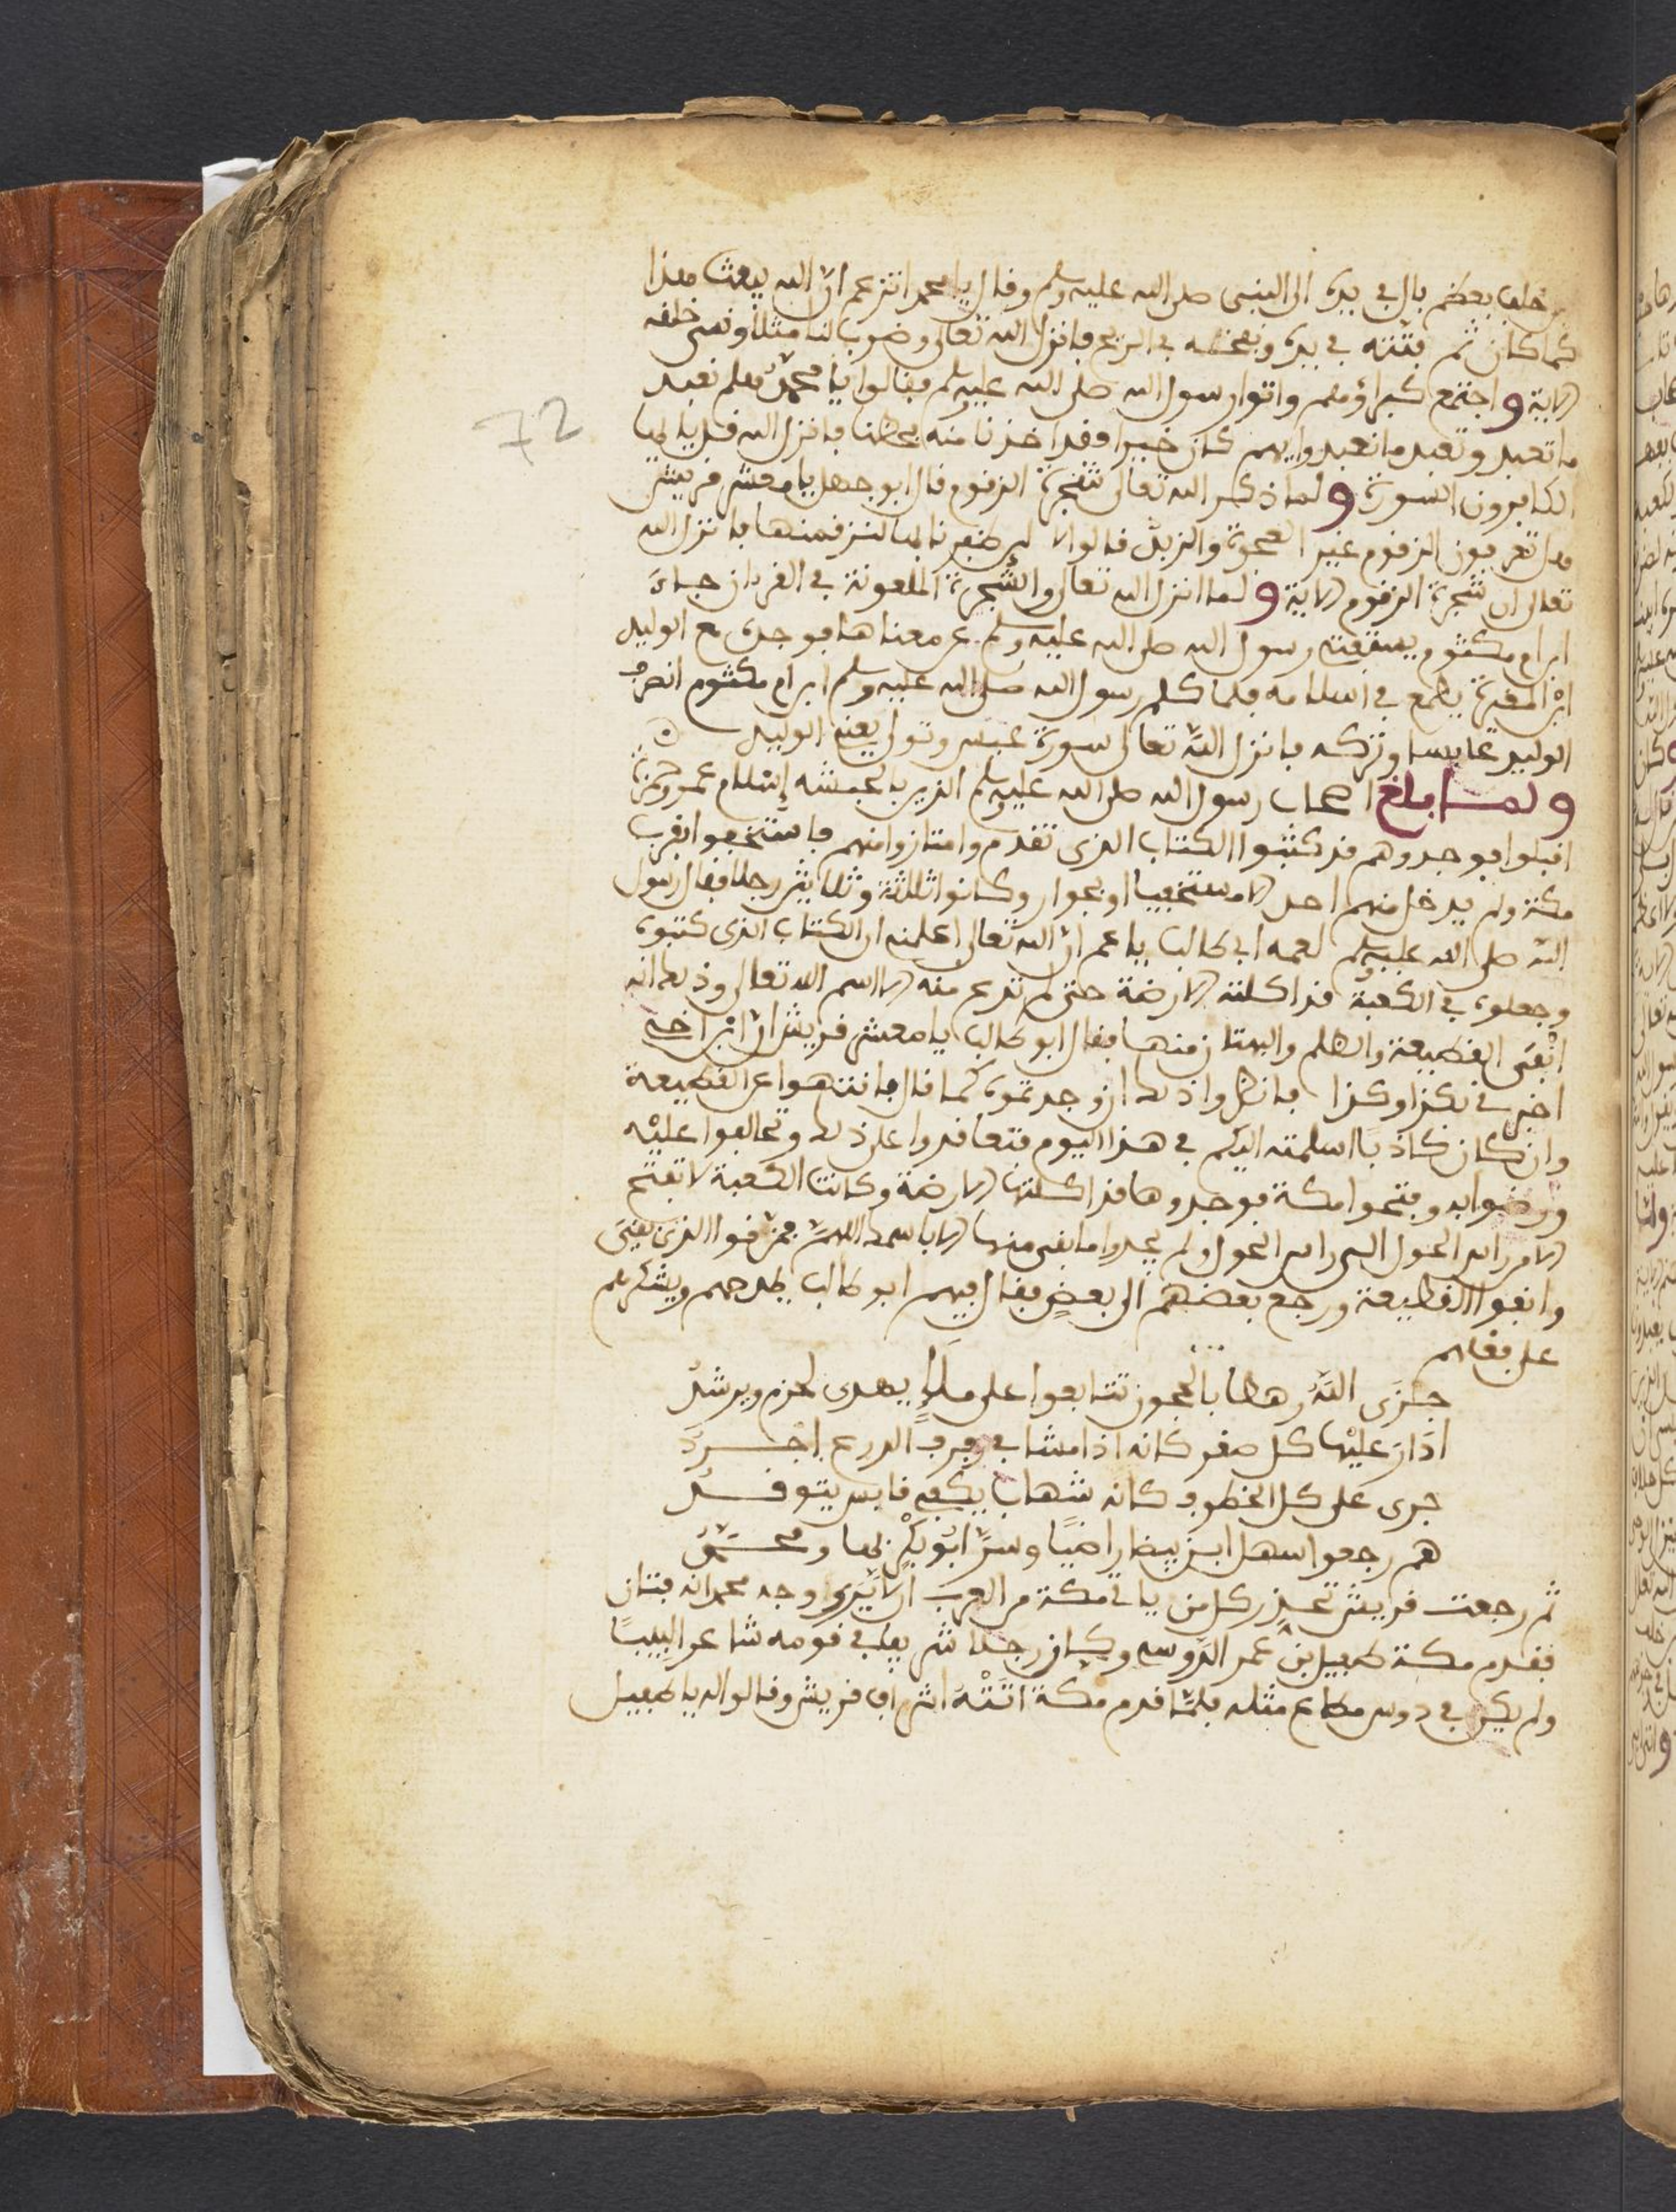 خلف بعظم بال في يده الى النبي صلى الله عليه وسلم وقال يا محمد اتزعم ان الله يبعث هذا
كما كان ثم فتته في يده ونفخه في الريح فانزل الله تعالى وضرب لنا مثلا ونسي خلقه
الاية واجتمع كبراؤهم واتوا رسول الله صلى الله عليه وسلم فقالوا يا محمد هلم نعبد
ما تعبد وتعبد ما نعبد وايهم كان خيرا فقد اخذنا منه بحظنا فانزل الله قل يا ايها
الكافرون السورة ولما ذكر الله تعالى شجرة الزقوم قال ابو جهل يا معشر قريش
هل تعرفون الزقوم غير العجوة والزبد قالوا لا لين ظفرنا بها لنزقمنها فانزل الله
تعالى ان شجرة الزقوم الاية ولما انزل الله تعالى والشجرة الملعونة في القران جاء
ابن ام مكتوم يستفته رسول الله صلى الله عليه وسلم عن معناها فوجده مع الوليد
ابن المغيرة يطمع في اسلامه فلما كلم رسول الله صلى الله عليه وسلم ابن ام مكتوم انصرف
الوليد عابسا وتركه فانزل الله تعالى سورة عبس وتولى يعني الوليد
ولما بلغ اصحاب رسول الله صلى الله عليه وسلم الذين بالحبشة إسلام عمر وحمزة
اقبلوا فوجدوهم قد كتبوا الكتاب الذي تقدم وامتازوا منهم فاستخفوا بقرب
مكة ولم يدخل منهم احد الا مستخفيا او بجوار وكانوا ثلاثة وثلاثين رجلا فقال رسول
الله صلى الله عليه وسلم لعمه ابي طالب يا عم ان الله تعالى اعلمني ان الكتاب الذي كتبوه
وجعلوه في الكعبة قد اكلته الارضة حتى لم تدع منه الا اسم الله تعالى وذلك انه
ابقى القطيعة والظلم والبهتان منها فقال ابو طالب يا معشر قريش ان ابن اخي
اخبرني بكذا وكذا فانظروا ذلك فان وجدتموه كما قال فانتهوا عن القطيعة
وان كان كاذبا اسلمته اليكم في هذا اليوم فتعاقدوا على ذلك وتحالفوا عليه
ورضوا به وفتحوا مكة فوجدوها قد اكلتها الارضة وكانت الكعبة لا تفتح
الا من راس الحول الى راس الحول ولم يجدوا ما بقي منها الا باسمك اللهم فمزقوا الذي بقي
وابقوا القطيعة ورجع بعضهم الى بعض فقال فيهم ابو طالب يمدحهم ويشكرهم
على فعلهم
جزى الله رهطا بالحجون تتابعوا على ملإ يهدي لحزم ويرشد
اذا ان عليها كل صقر كانه اذا مشا في رفرف الدرع اجرد
جرى على كل الخطوب كانه شهاب بكفي قابس يتوقد
هم رجعوا سهل ابن بيضا راضيا وسر ابو بكر بها ومحمد
ثم رجعت قريش تحذر كل من ياتي مكة من العرب ان لا يرى وجه محمد انه فتان
فقدم مكة طفيل بن عمر الدوسي وكان رجلا شريفا في قومه شاعرا لبيبا
ولم يكن في دوس مطاع مثله فلما قدم مكة اتته اشراف قريش وقالوا له يا طفيل
72